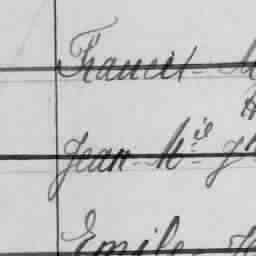 Francis M
Jean Mie J
Emile